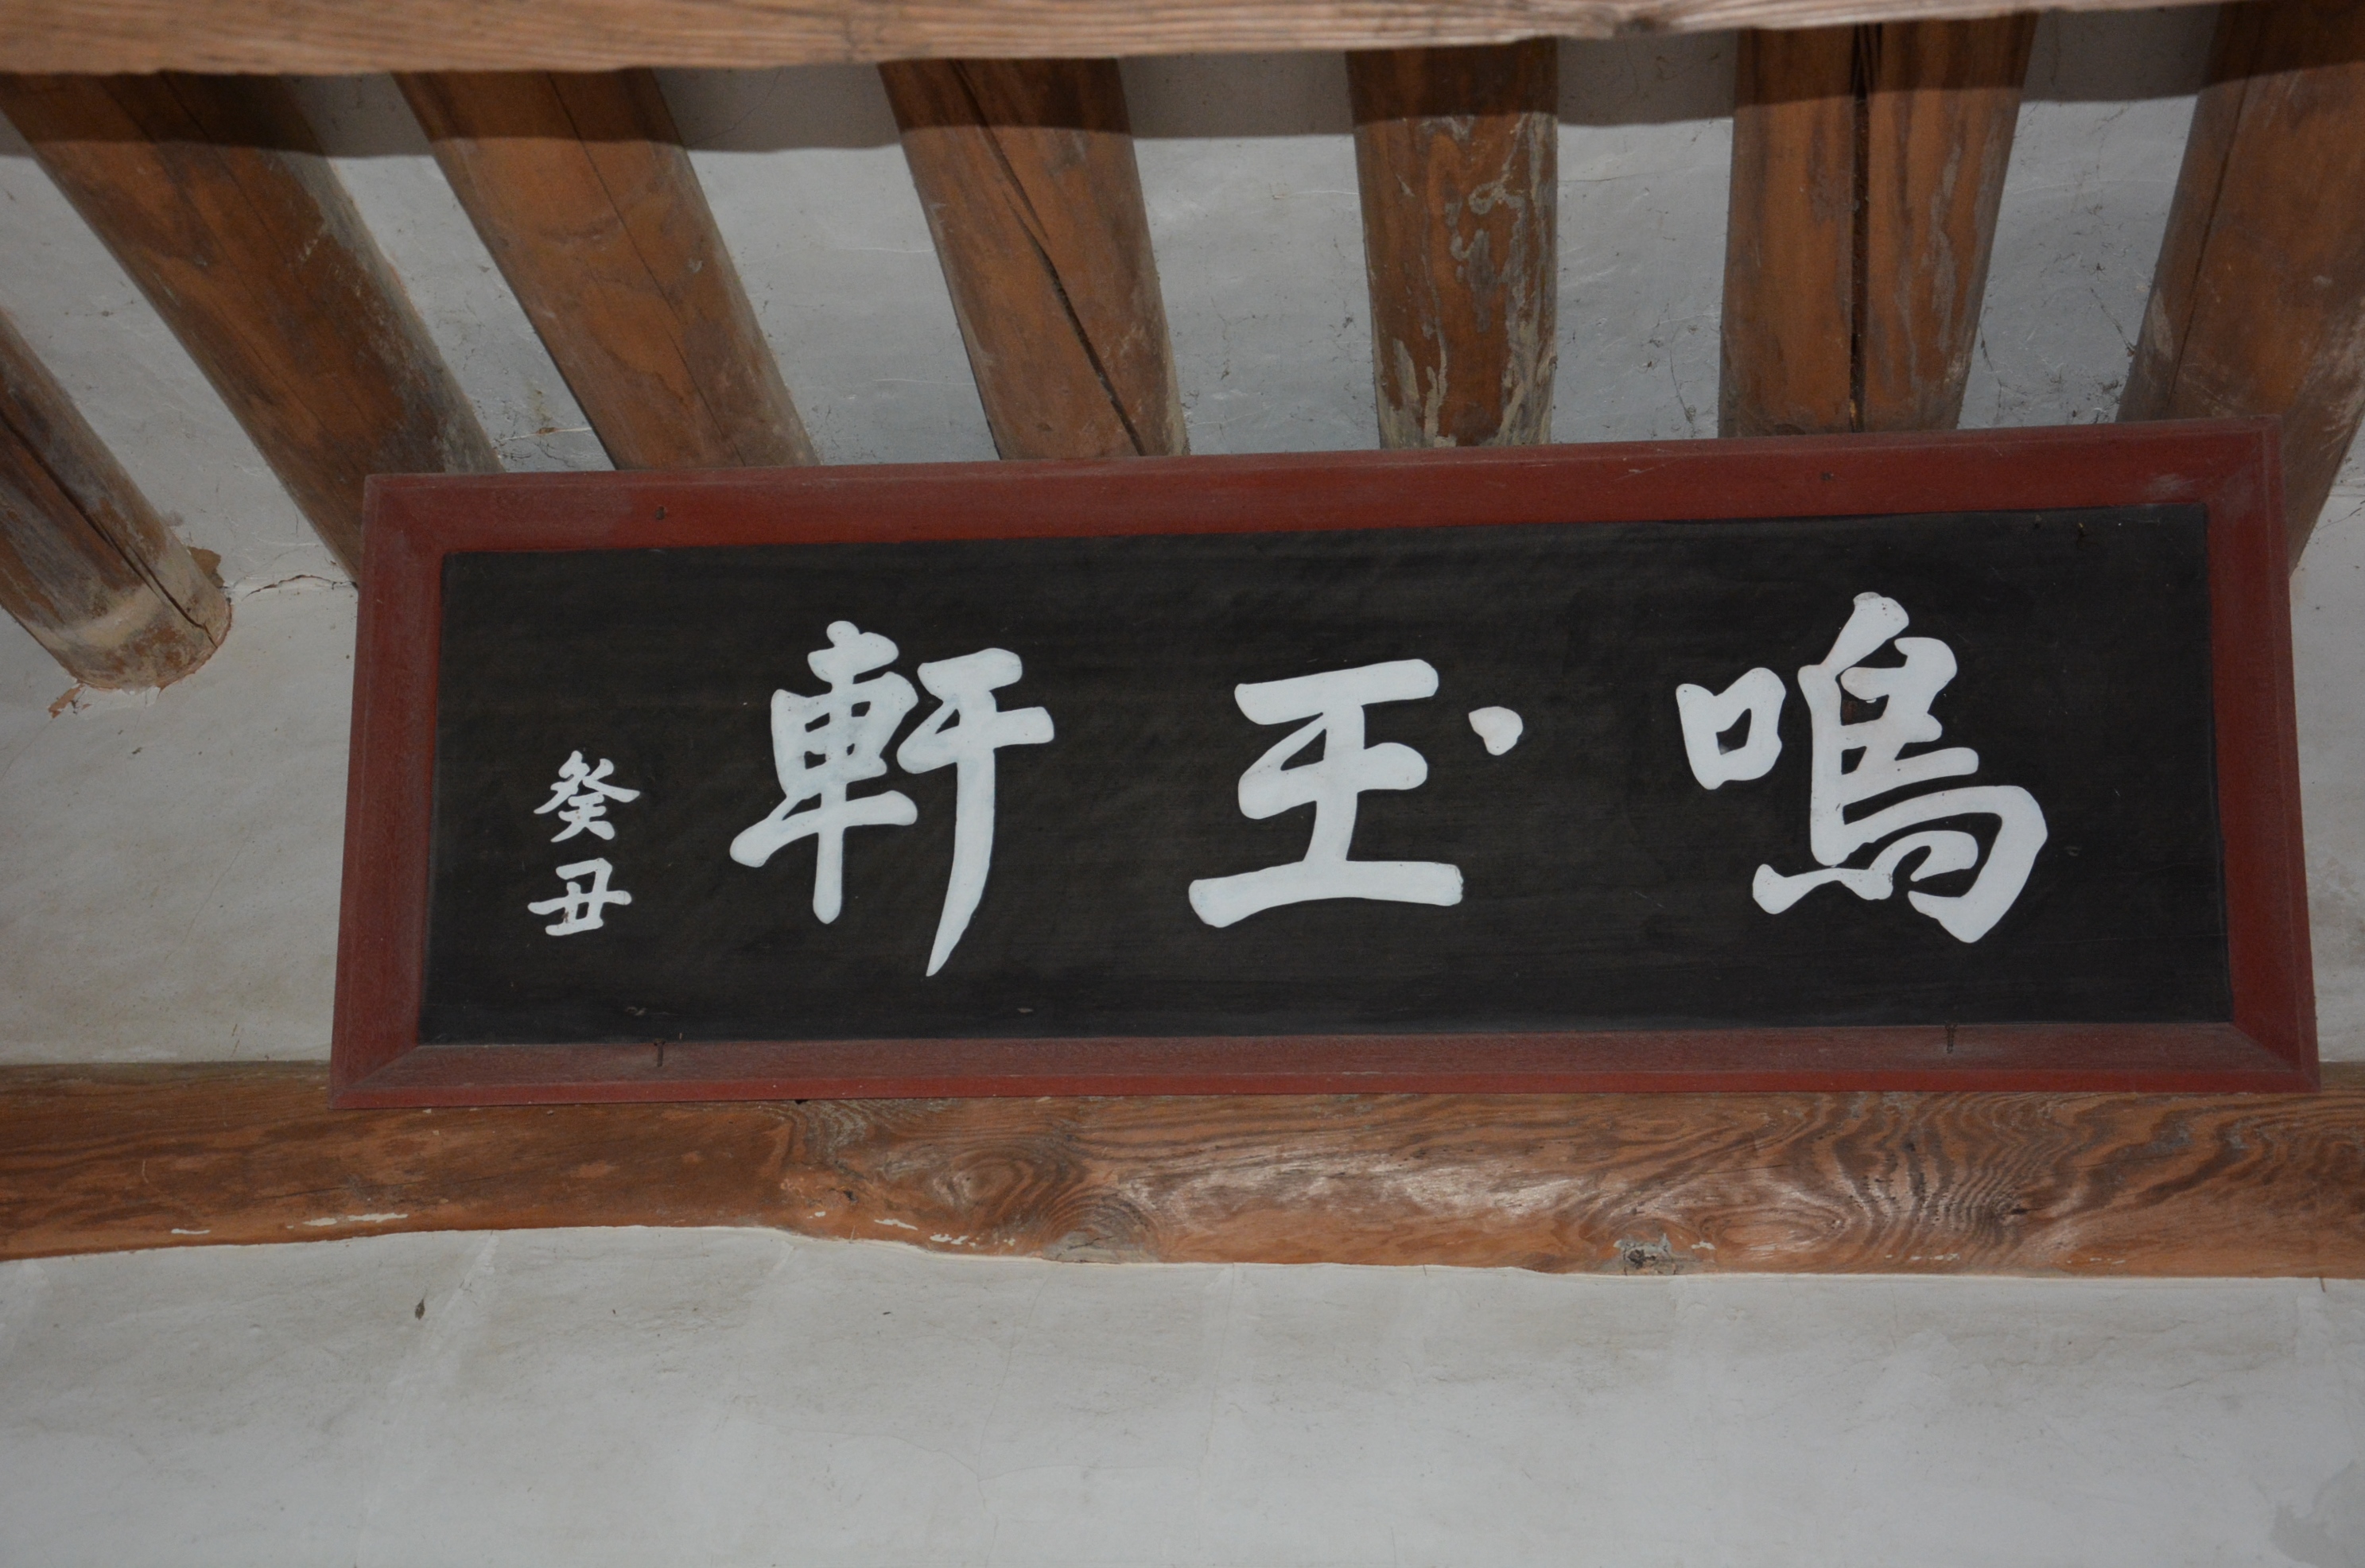 鳴玉軒
癸丑